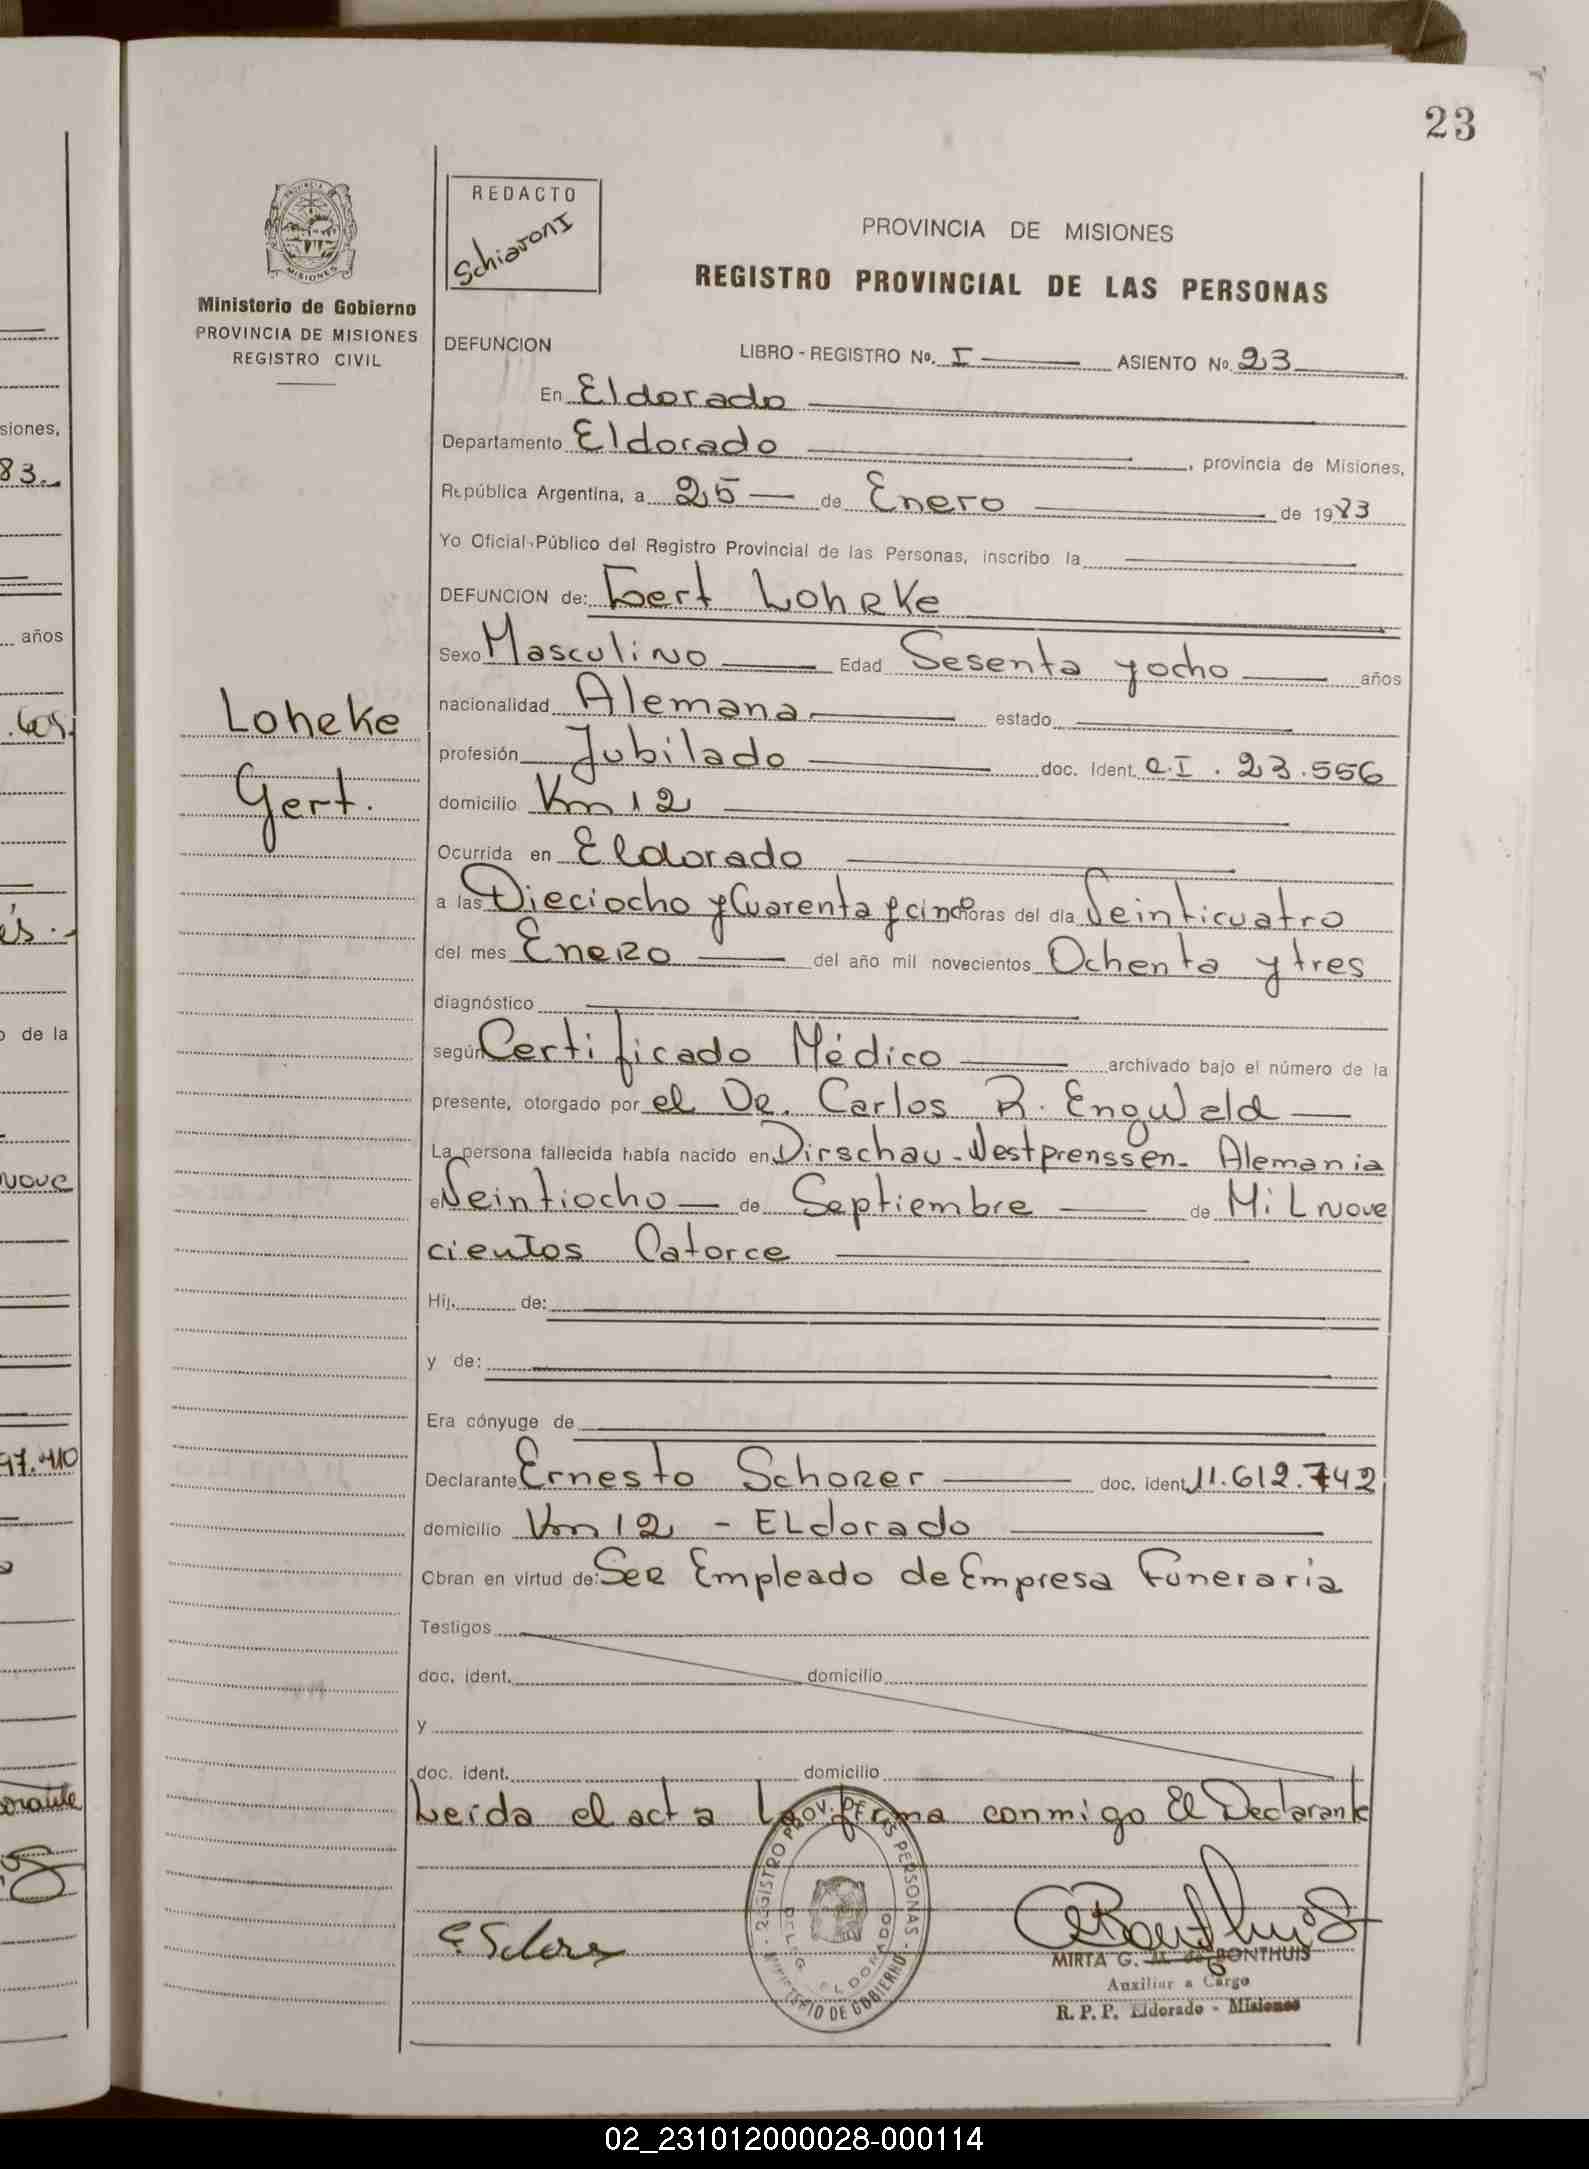 23
REDACTO
Schiaroni
PROVINCIA DE MISIONES
REGISTRO PROVINCIAL DE LAS PERSONAS
MISIONES
Ministerio de Gobierno
PROVINCIA DE MISIONES
REGISTRO CIVIL
DEFUNCION LIBRO - REGISTRO No. I ASIENTO No. 23
En Eldorado
Departamento Eldorado, provincia de Misiones,
República Argentina, a 25 de Enero de 1983
Yo Oficial Público del Registro Provincial de las Personas, inscribo la
DEFUNCION de: Gert Loheke
Sexo Masculino Edad Sesenta y ocho años
nacionalidad Alemana estado
profesión Jubilado doc. Ident. C.I. 23.556
domicilio Km 12
Ocurrida en Eldorado
a las Dieciocho y Cuarenta y cinco horas del día Veinticuatro
del mes Enero del año mil novecientos Ochenta y tres
diagnóstico
según Certificado Médico archivado bajo el número de la
presente, otorgado por el Dr. Carlos R. Engwald
La persona fallecida había nacido en Dirschau - Westprenssen - Alemania
el Veintiocho de Septiembre de Mil Nove
cientos Catorce
Hij. de:
y de:
Era cónyuge de
Declarante Ernesto Schorer doc. ident. 11.612.742
domicilio Km 12 - Eldorado
Obran en virtud de: Ser Empleado de Empresa Funeraria
Testigos
doc. ident. domicilio
y
doc. ident. domicilio
Leida el acta la firma conmigo El Declarante
Loheke
Gert.
REGISTRO PROV. DE LAS PERSONAS
MINISTERIO DE GOBIERNO
DELEG. ELDORADO
MIRTA G. M. de BONTHUIS
Auxiliar a Cargo
R. P. P. Eldorado - Misiones
siones,
83.
años
o de la
nove
97.410
02_231012000028-000114